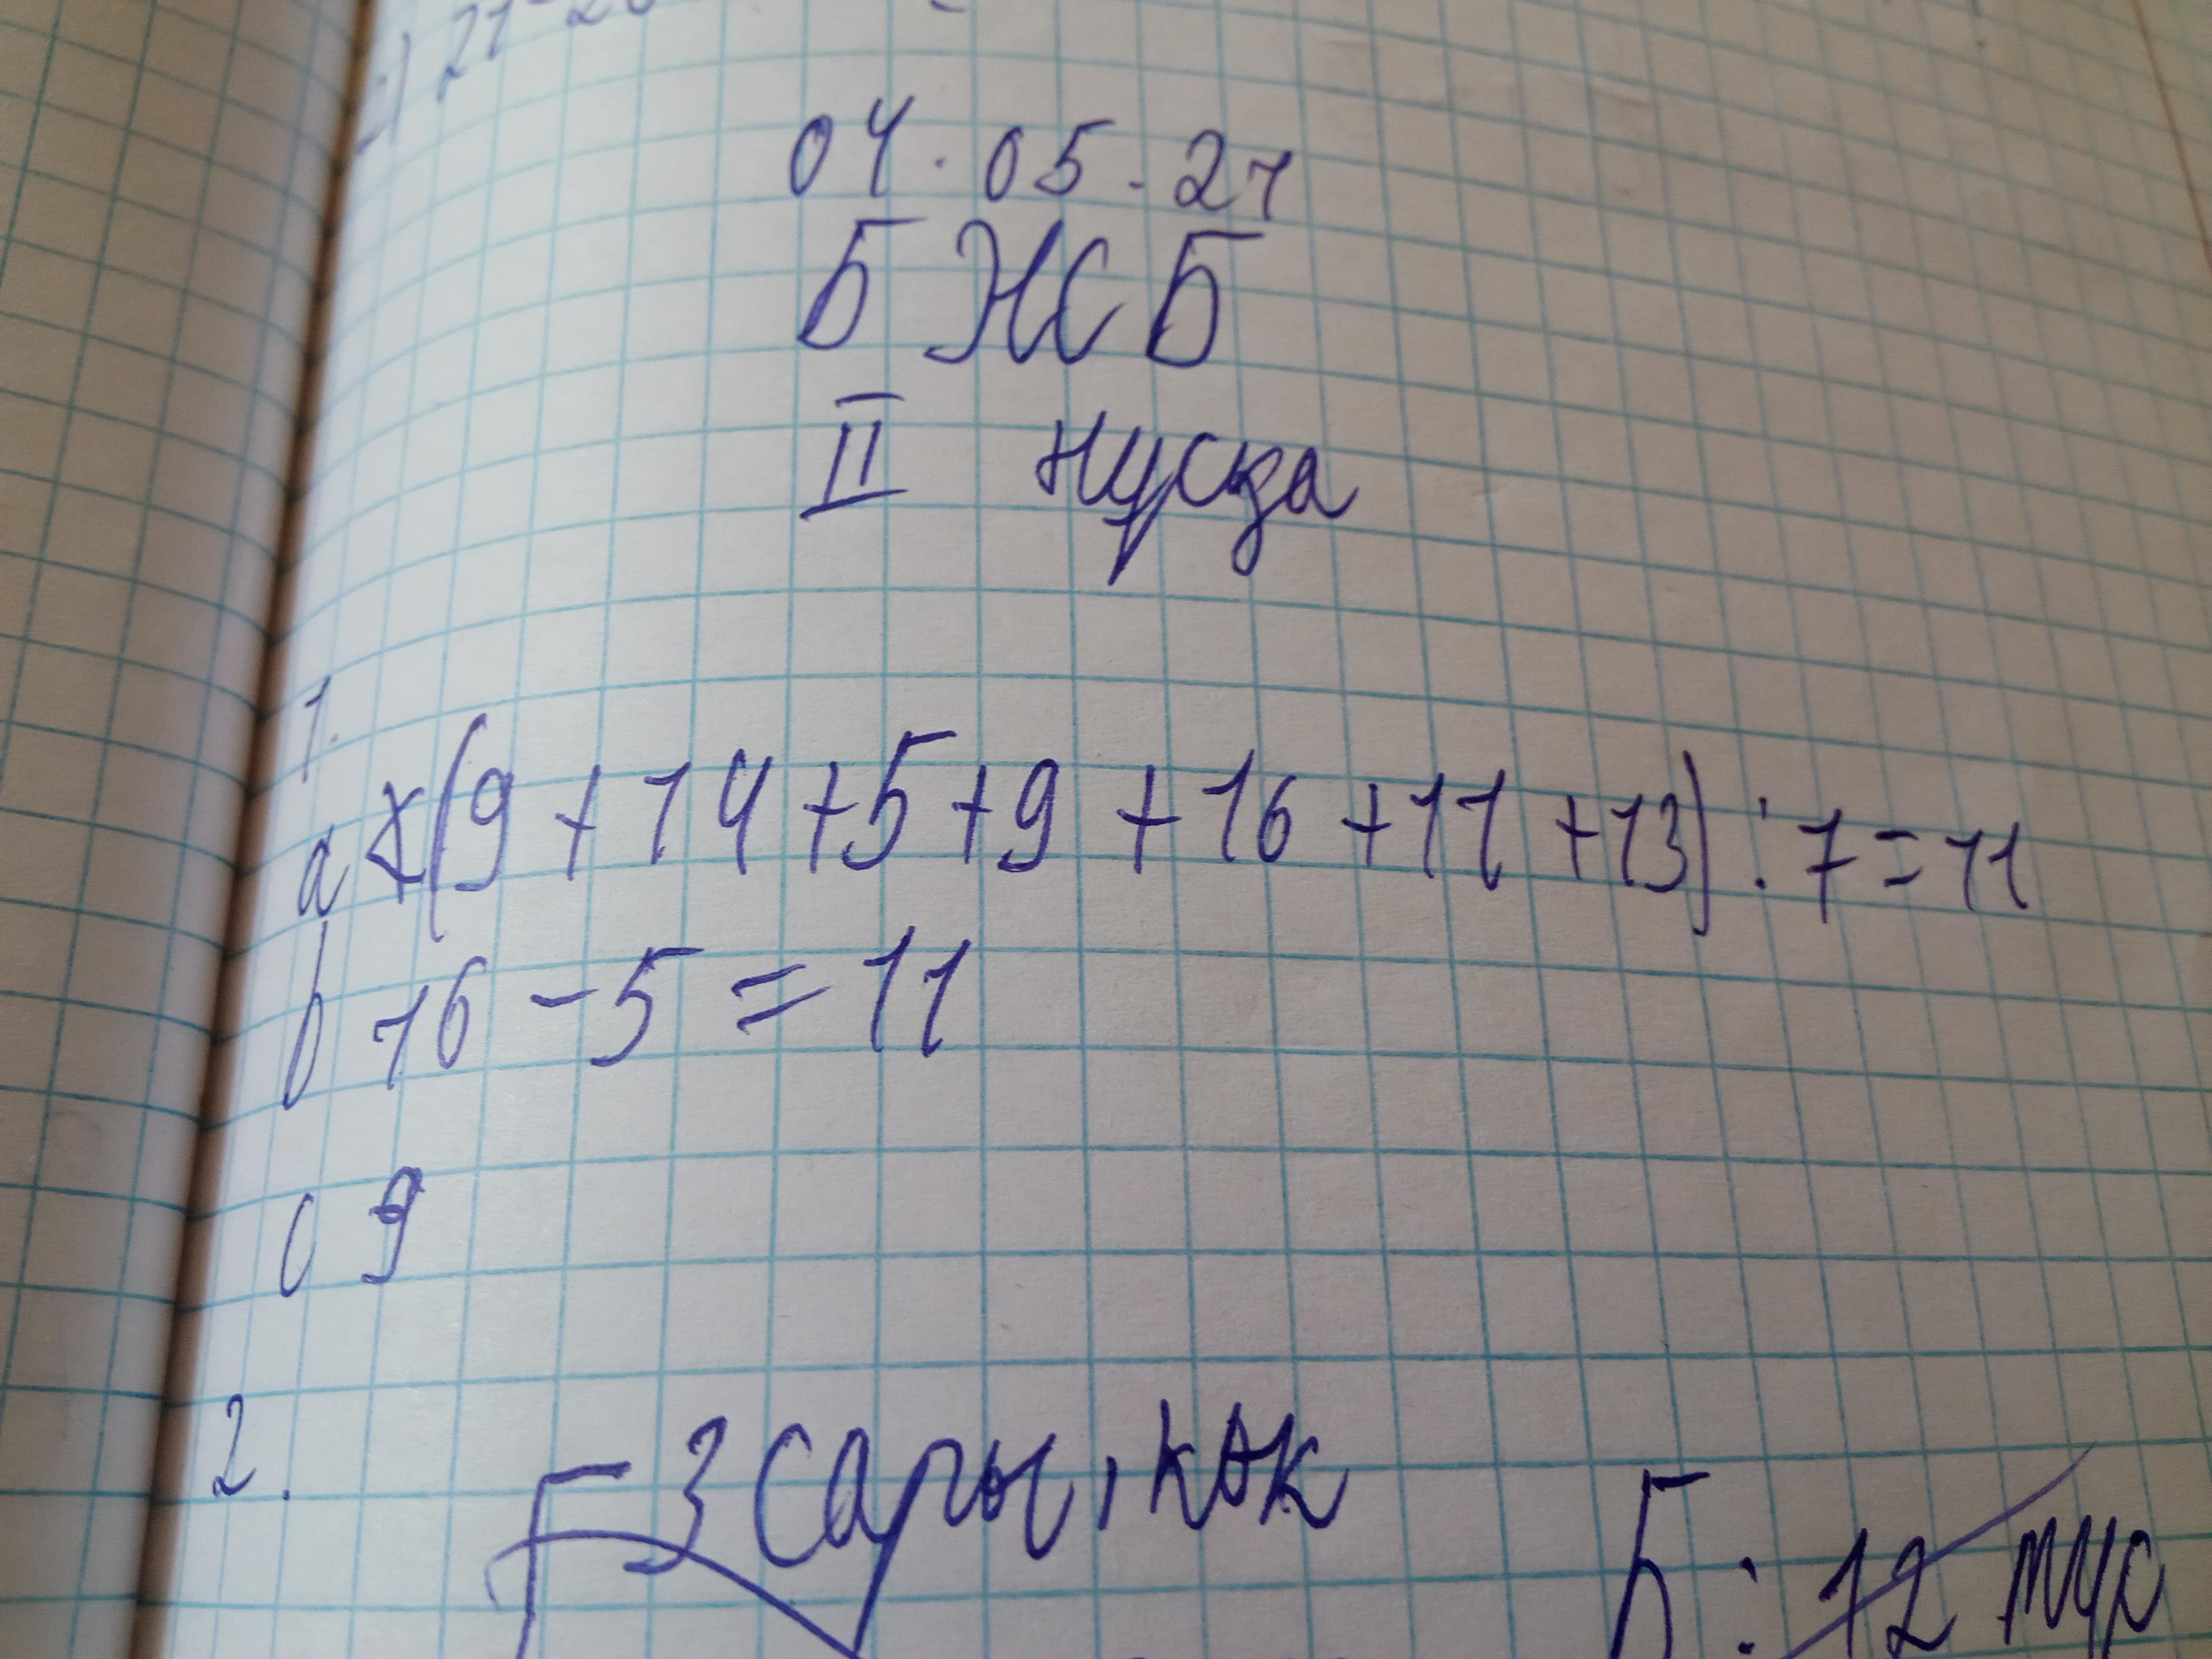 04.05.21
БЖСБ
II нұсқа
1.
a (9+14+5+9+16+11+13):7=11
b 16-5=11
c 9
2.
3 сары, көк
Б: 12 түр